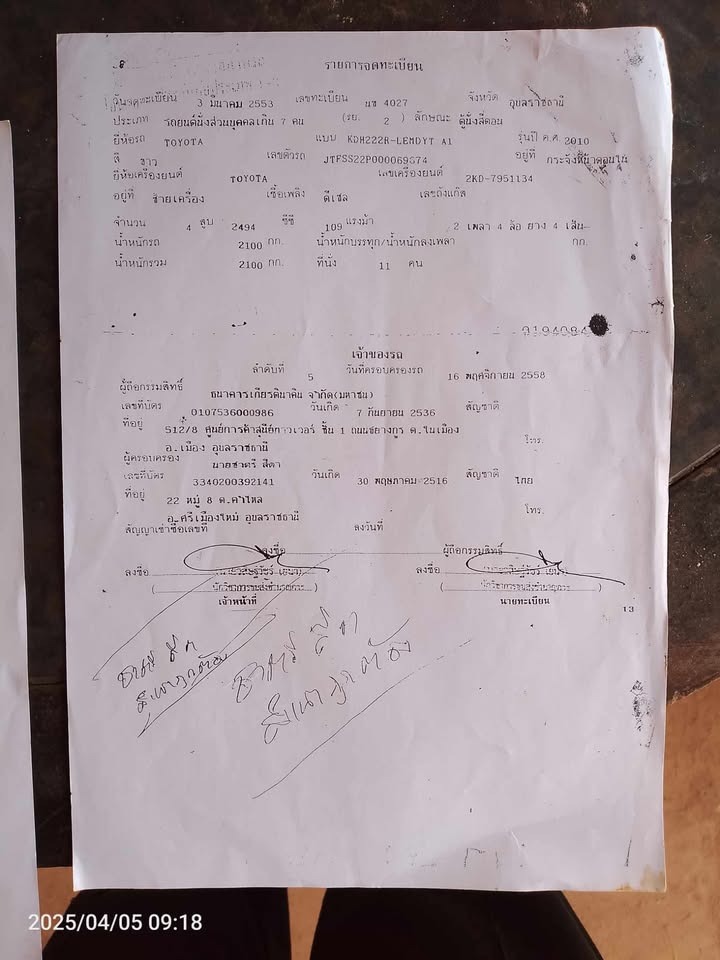 รายการจดทะเบียน
วันจดทะเบียน 3 มีนาคม 2553 เลขทะเบียน นข 4027 จังหวัด อุบลราชธานี
ประเภท รถยนต์นั่งส่วนบุคคลเกิน 7 คน (รย. 2 ) ลักษณะ ตู้นั่งสี่ตอน
ยี่ห้อรถ TOYOTA แบบ KDH222R-LEMDYT A1 รุ่นปี ค.ศ. 2010
สี ขาว เลขตัวรถ JTFSS22P000069874 อยู่ที่ กระจังหน้าตอนใน
ยี่ห้อเครื่องยนต์ TOYOTA เลขเครื่องยนต์ 2KD-7951134
อยู่ที่ ซ้ายเครื่อง เชื้อเพลิง ดีเซล เลขถังแก๊ส
จำนวน 4 สูบ 2494 ซีซี 109 แรงม้า 2 เพลา 4 ล้อ ยาง 4 เส้น
น้ำหนักรถ 2100 กก. น้ำหนักบรรทุก/น้ำหนักลงเพลา กก.
น้ำหนักรวม 2100 กก. ที่นั่ง 11 คน
0194084
เจ้าของรถ
ลำดับที่ 5 วันที่ครอบครองรถ 16 พฤศจิกายน 2558
ผู้ถือกรรมสิทธิ์ ธนาคารเกียรตินาคิน จำกัด(มหาชน)
เลขที่บัตร 0107536000986 วันเกิด 7 กันยายน 2536 สัญชาติ
ที่อยู่ 512/8 ศูนย์การค้าสุนีย์ทาวเวอร์ ชั้น 1 ถนนชยางกูร ต.ในเมือง
อ.เมือง อุบลราชธานี โทร.
ผู้ครอบครอง นายชาตรี สีดา
เลขที่บัตร 3340200392141 วันเกิด 30 พฤษภาคม 2516 สัญชาติ ไทย
ที่อยู่ 22 หมู่ 8 ต.คำไหล
อ.ศรีเมืองใหม่ อุบลราชธานี โทร.
สัญญาเช่าซื้อเลขที่ ลงวันที่
ลงชื่อ ผู้ถือกรรมสิทธิ์
ลงชื่อ ลงชื่อ
นักวิชาการขนส่งชำนาญการ นักวิชาการขนส่งชำนาญการ
เจ้าหน้าที่ นายทะเบียน
13
สำเนาถูกต้อง
สำเนาถูกต้อง
2025/04/05 09:18